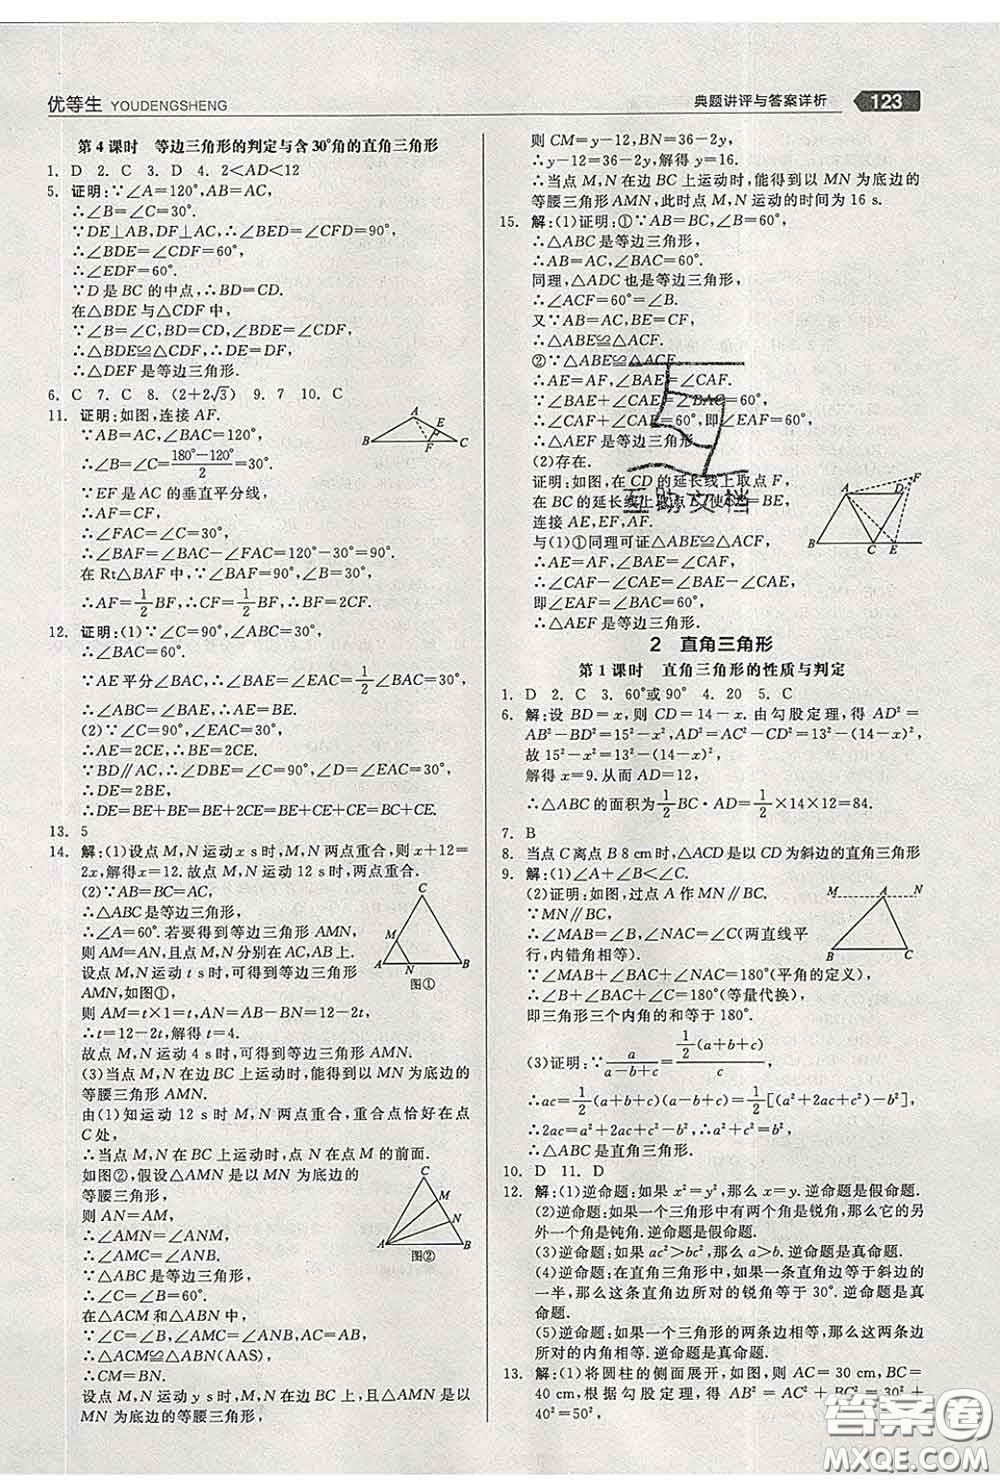 优等生 YOUDENGSHENG
典题讲评与答案详析 123
第4课时 等边三角形的判定与含30°角的直角三角形
1. D 2. C 3. D 4. 2<AD<12
5. 证明:∵∠A=120°,AB=AC,
∴∠B=∠C=30°.
∵DE⊥AB,DF⊥AC,∴∠BED=∠CFD=90°,
∴∠BDE=∠CDF=60°,
∴∠EDF=60°.
∵D是BC的中点,∴BD=CD.
在△BDE与△CDF中,
∵∠B=∠C,BD=CD,∠BDE=∠CDF,
∴△BDE≌△CDF,∴DE=DF.
∴△DEF是等边三角形.
6. C 7. C 8. (2+2√3) 9. 7 10. C
11. 证明:如图,连接AF.
∵AB=AC,∠BAC=120°,
∴∠B=∠C=(180°-120°)/2=30°.
∵EF是AC的垂直平分线,
∴AF=CF,
∴∠FAC=∠C=30°,
∴∠BAF=∠BAC-∠FAC=120°-30°=90°.
在Rt△BAF中,∵∠BAF=90°,∠B=30°,
∴AF=1/2BF,∴CF=1/2BF,∴BF=2CF.
A E B F C
12. 证明:(1)∵∠C=90°,∠ABC=30°,
∴∠BAC=60°.
∵AE平分∠BAC,∴∠BAE=30°,
∴∠ABC=∠BAE,∴AE=BE.
(2)∵∠C=90°,∠CAE=30°,
∴AE=2CE,∴BE=2CE.
∵BD∥AC,∴∠DBE=∠C=90°,∠D=∠CAE=30°,
∴DE=2BE,
∴DE=BE+BE=BE+2CE=BE+CE+CE=BC+CE.
13. 5
14. 解:(1)设点M,N运动x s时,M,N两点重合,则x+12=
2x,解得x=12.故点M,N运动12 s时,M,N两点重合.
(2)∵AB=AC=BC,
∴△ABC是等边三角形,
∴∠A=60°.若要得到等边三角形AMN,
则AM=AN,且点M,N分别在AC,AB上.
设点M,N运动t s时,可得到等边三角形
AMN,如图①,
则AM=t×1=t,AN=AB-BN=12-2t,
∴t=12-2t,解得t=4.
故点M,N运动4 s时,可得到等边三角形AMN.
C M A N B 图①
(3)当点M,N在边BC上运动时,可以得到以MN为底边的
等腰三角形AMN.
由(1)知运动12 s时,M,N两点重合,重合点恰好在点
C处,
∴当点M,N在BC上运动时,点N在点M的前面.
如图②,假设△AMN是以MN为底边的
等腰三角形,
则AN=AM,
∴∠AMN=∠ANM,
∴∠AMC=∠ANB.
∵△ABC是等边三角形,
∴∠C=∠B=60°.
在△ACM和△ABN中,
∵∠C=∠B,∠AMC=∠ANB,AC=AB,
∴△ACM≌△ABN(AAS),
∴CM=BN.
C M N A B 图②
设点M,N运动y s时,M,N在边BC上,且△AMN是以
MN为底边的等腰三角形,
则CM=y-12,BN=36-2y,
∴y-12=36-2y,解得y=16.
∴当点M,N在BC上运动时,能得到以MN为底边的
等腰三角形AMN,此时点M,N运动的时间为16 s.
15. 解:(1)证明:①∵AB=BC,∠B=60°,
∴△ABC是等边三角形,
∴AB=AC,∠BAC=60°.
同理,△ADC也是等边三角形,
∴∠ACF=60°=∠B.
又∵AB=AC,BE=CF,
∴△ABE≌△ACF.
②∵△ABE≌△ACF,
∴AE=AF,∠BAE=∠CAF.
∵∠BAE+∠CAE=∠BAC=60°,
∴∠CAF+∠CAE=60°,即∠EAF=60°,
∴△AEF是等边三角形.
(2)存在.
证明:如图,在CD的延长线上取点F,
在BC的延长线上取点E,使CF=BE,
连接AE,EF,AF.
与(1)①同理可证△ABE≌△ACF,
∴∠BAE=∠CAF,AE=AF,
∴∠BAE-∠CAE=∠CAF-∠CAE,
即∠EAF=∠BAC=60°,
∴△AEF是等边三角形.
F A D B C E
互助文档
2 直角三角形
第1课时 直角三角形的性质与判定
1. D 2. C 3. 60°或90° 4. 20 5. C
6. 解:设BD=x,则CD=14-x.由勾股定理,得AD²=
AB²-BD²=15²-x²,AD²=AC²-CD²=13²-(14-x)²,
故15²-x²=13²-(14-x)²,
解得x=9.从而AD=12,
∴△ABC的面积为1/2BC·AD=1/2×14×12=84.
7. B
8. 当点C离点B 8 cm时,△ACD是以CD为斜边的直角三角形
9. 解:(1)∠A+∠B<∠C.
(2)证明:如图,过点A作MN∥BC.
∵MN∥BC,
∴∠MAB=∠B,∠NAC=∠C(两直线平
行,内错角相等).
∵∠MAB+∠BAC+∠NAC=180°(平角的定义),
∴∠B+∠BAC+∠C=180°(等量代换),
即三角形三个内角的和等于180°.
M A N B C
(3)证明:∵a/(a-b+c)=1/2(a+b+c)/c,
∴ac=1/2(a+b+c)(a-b+c)=1/2[(a²+2ac+c²)-b²],
∴2ac=a²+2ac+c²-b²,∴a²+c²=b²,
∴△ABC是直角三角形.
10. D 11. D
12. 解:(1)逆命题:如果x²=y²,那么x=y.逆命题是假命题.
(2)逆命题:如果一个三角形中有两个角是锐角,那么它的另
外一个角是钝角.逆命题是假命题.
(3)逆命题:如果ac²>bc²,那么a>b.逆命题是真命题.
(4)逆命题:在直角三角形中,如果一条直角边等于斜边的
一半,那么这条直角边所对的锐角等于30°.逆命题是真
命题.
(5)逆命题:如果一个三角形的两条边相等,那么这两条边
所对的内角相等.逆命题是真命题.
13. 解:(1)将圆柱的侧面展开,如图,则AC=30 cm,BC=
40 cm,根据勾股定理,得AB²=AC²+BC²=30²+
40²=50²,
答案圈
MXQE.COM